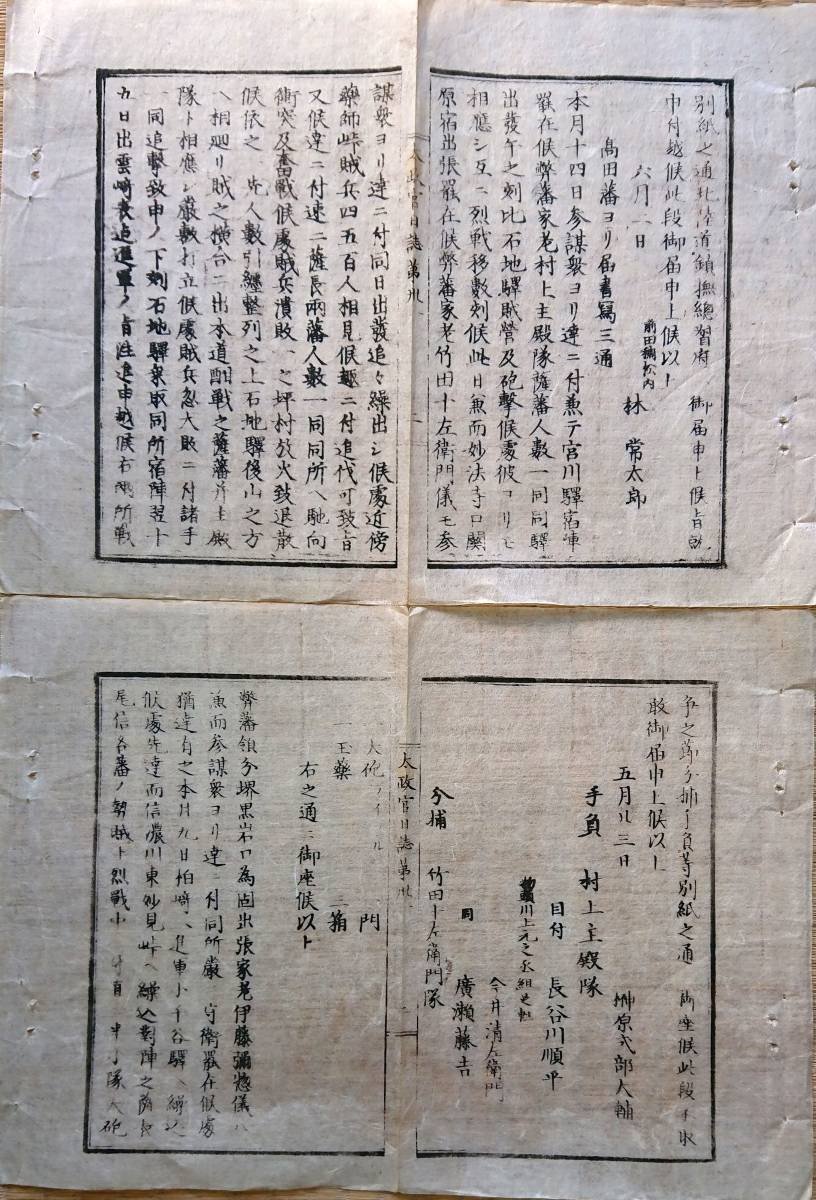 別紙之通北陸道鎮撫總督府 御届申上候旨
申付越候此段御届申上候以上
六月二日
前田 松内
林 常太郎
高田藩ヨリ届書寫三通
本月十四日参謀衆ヨリ達ニ付兼テ宮川驛宿陣
罷在候弊藩家老村上主殿隊薩藩人數一同同驛
出發午之刻比石地驛賊營及砲撃候處彼ヨリモ
相應シ互ニ烈戰移數刻候此日兼而妙法寺口關
原宿出張罷在候弊藩家老竹田十左衛門儀モ参
太政官日誌第卅
謀衆ヨリ達ニ付同日出發追々繰出シ候處近傍
藥師峠賊兵四五百人相見候趣ニ付追伐可致旨
又候達ニ付速ニ薩長兩藩人數一同同所ヘ馳向
衝突及奮戰候處賊兵潰敗一之坪村放火致退散
候依之先人數引纏整列之上石地驛後山之方
ヘ相廻リ賊之横合ニ出本道酣戰之薩藩并主殿
隊ト相應シ嚴敷打立候處賊兵忽大敗ニ付諸手
一同追撃致申ノ下刻石地驛乗取同所宿陣翌十
五日出雲崎表迄進軍ノ旨注進申越候右兩所戰
争之節分捕手負等別紙之通 御座候此段不取
敢御届申上候以上
五月廿三日 榊原式部大輔
手負 村上主殿隊
目付 長谷川順平
川上元之丞組
今井清左衛門
同 廣瀬藤吉
分捕 竹田十左衛門隊
太政官日誌第卅
一大砲 門
一玉藥 三箱
右之通ニ御座候以上
弊藩領分堺黒岩口為固出張家老伊藤彌惣儀ハ
兼而参謀衆ヨリ達ニ付同所嚴 守衛罷在候處
猶達有之本月九日柏崎ヘ進軍小千谷驛ヘ繰込
候處先達而信濃川東妙見峠ヘ繰込對陣之薩長
尾信各藩ノ勢敵ト烈戰 隊大砲